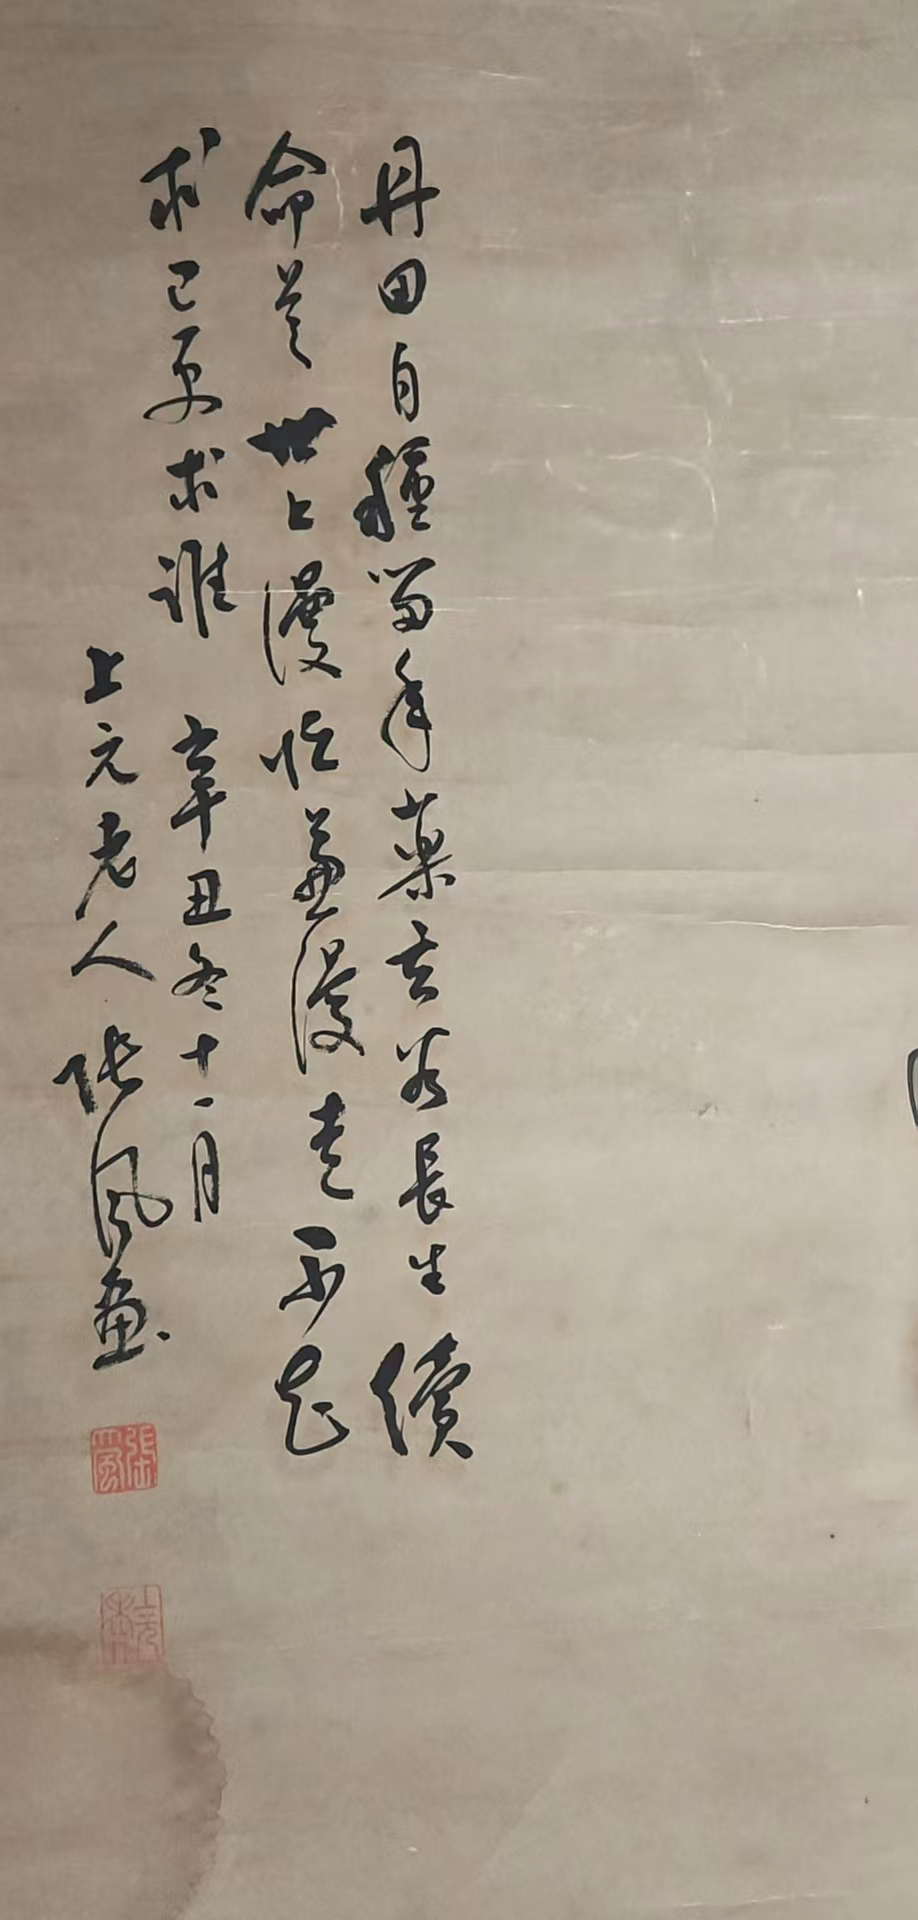 丹田自種留年藥玄谷長生續
命芝世上漫忙兼漫走不知
求己更求誰 辛丑冬十一月
上元老人張風畫
張風
上元老人